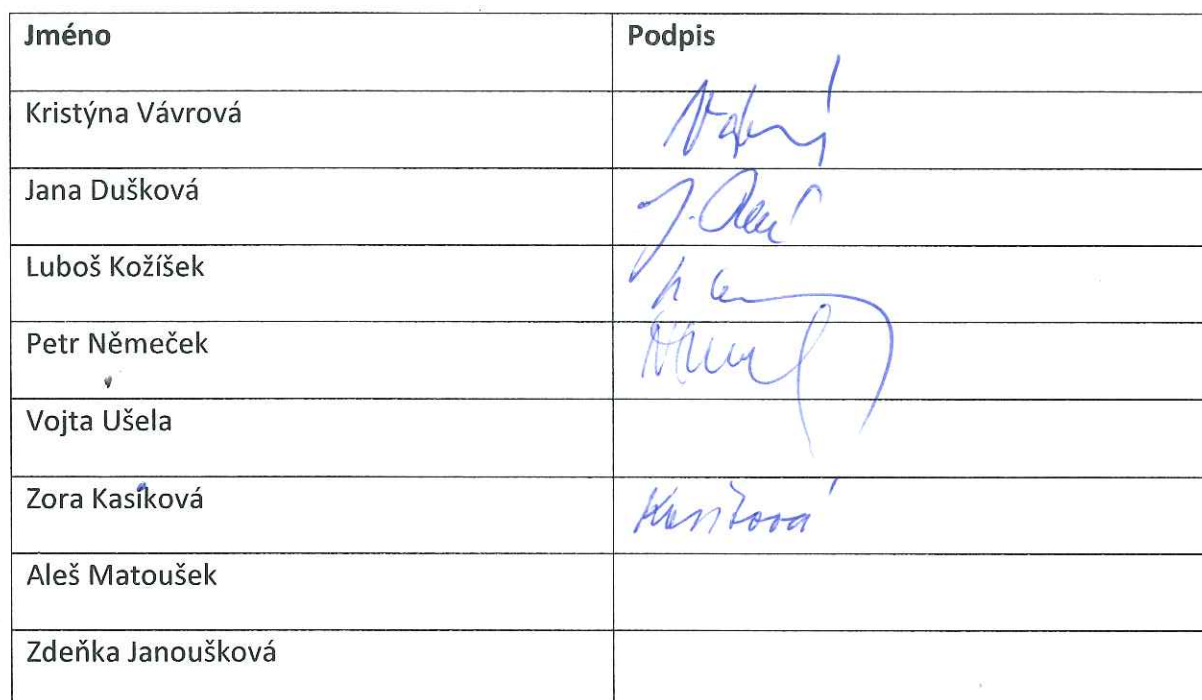 Jméno Podpis
Kristýna Vávrová
Jana Dušková
Luboš Kožíšek
Petr Němeček
Vojta Ušela
Zora Kasíková Kasíková
Aleš Matoušek
Zdeňka Janoušková